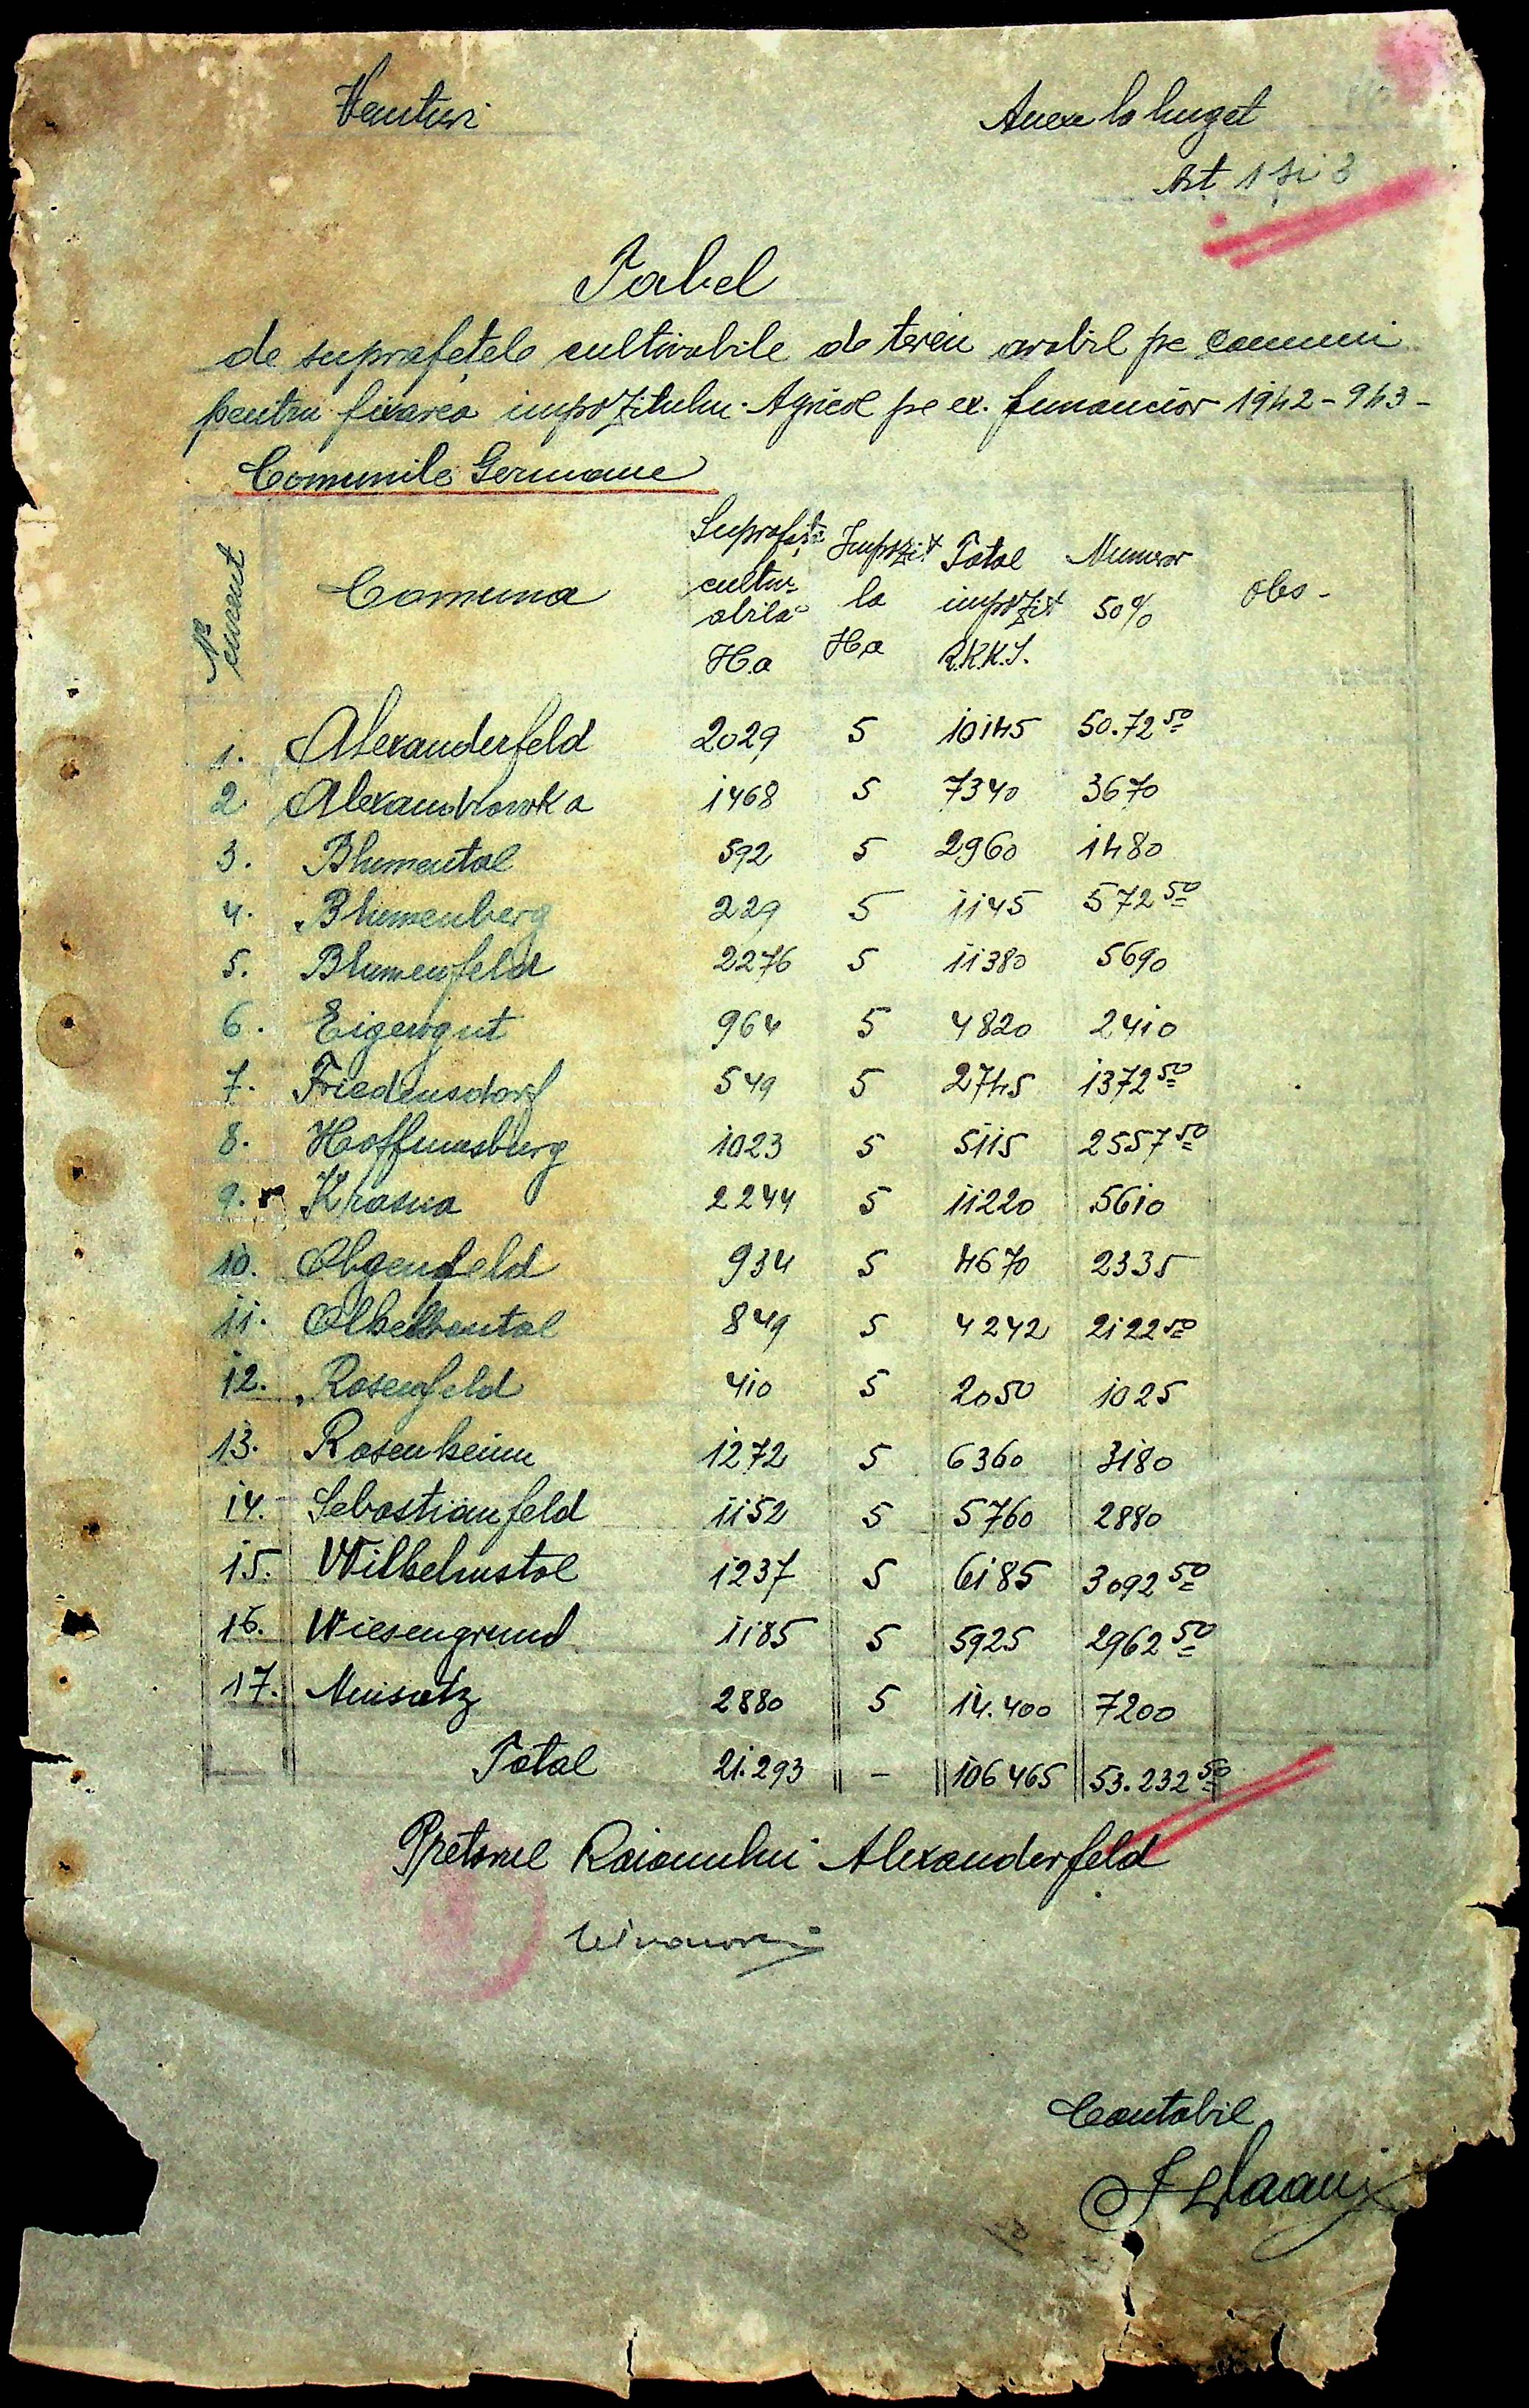 Venituri
Anexe la buget
Art. 1 și 3
Tabel
de suprafețele cultivabile de teren arabil pe comuni
pentru fixarea impozitului Agricol pe ex. financiar 1942-943-
Comunile Germane
Nr curent Comuna Suprafața cultivabilă Ha Impozit la Ha Total impozit R.K.K.S. Numerar 50% Obs-
1. Alexanderfeld 2029 5 10145 50.72 50
2 Alexandrowka 1468 5 7340 3670
3. Blumental 592 5 2960 1480
4. Blumenberg 229 5 1145 572 50
5. Blumenfeld 2276 5 11380 5690
6. Eigengut 964 5 4820 2410
7. Friedensdorf 549 5 2745 1372 50
8. Hoffnusburg 1023 5 5115 2557 50
9. Krasna 2244 5 11220 5610
10. Olgenfeld 934 5 4670 2335
11. 849 5 4242 2122 50
12. Rosenfeld 410 5 2050 1025
13. Rosenheim 1272 5 6360 3180
14. Sebastianfeld 1152 5 5760 2880
15. Wilhelmstal 1237 5 6185 3092 50
16. Wiesengrund 1185 5 5925 2962 50
17. Neusatz 2880 5 14.400 7200
Total 21.293 - 106465 53.232 50
Pretorul Raionului Alexanderfeld
Contabil